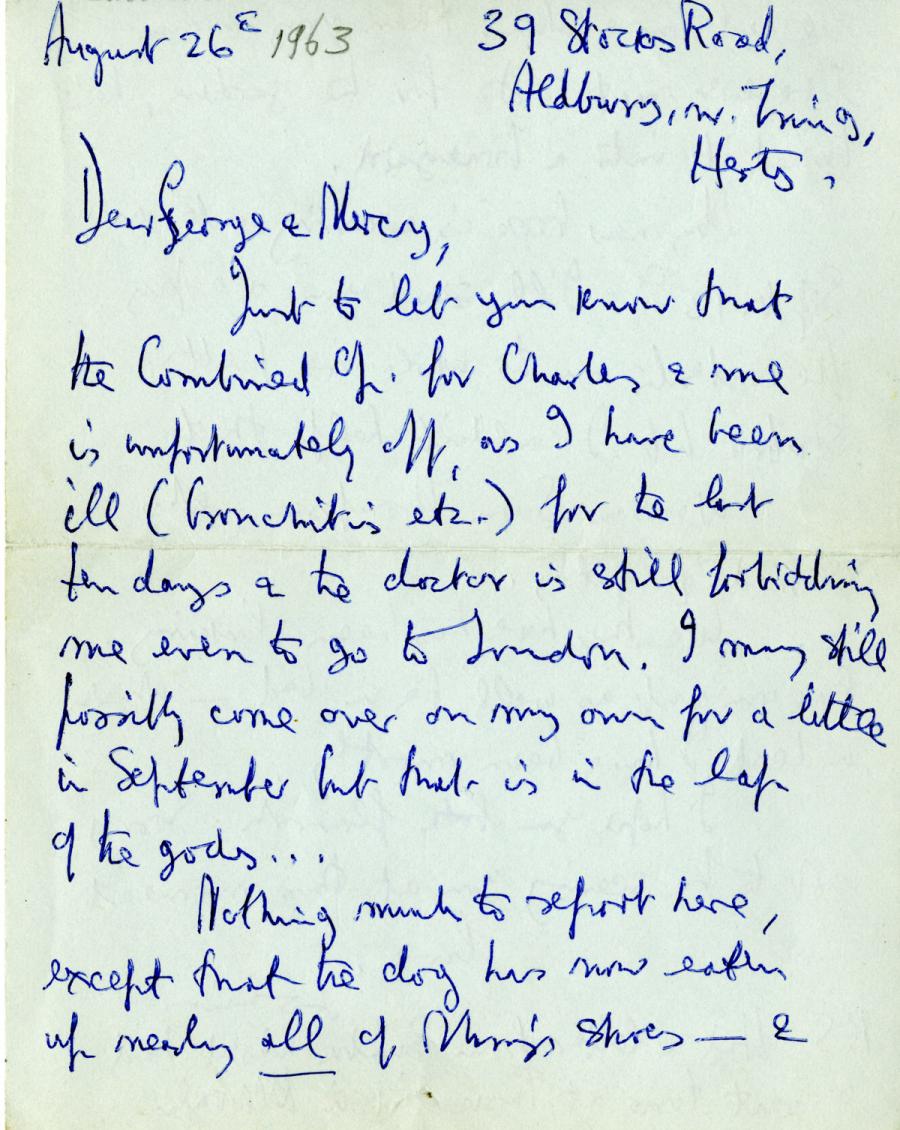 August 26th 1963 39 Stocks Road,
Aldbury, nr. Tring,
Herts.
Dear George & Mercy,
Just to let you know that
the Combined Op. for Charles & me
is unfortunately off, as I have been
ill (bronchitis etc.) for the last
ten days & the doctor is still forbidding
me even to go to London. I may still
possibly come over on my own for a little
in September but that is in the lap
of the gods...
Nothing much to report here,
except that the dog has now eaten
up nearly all of Mary's shoes — &